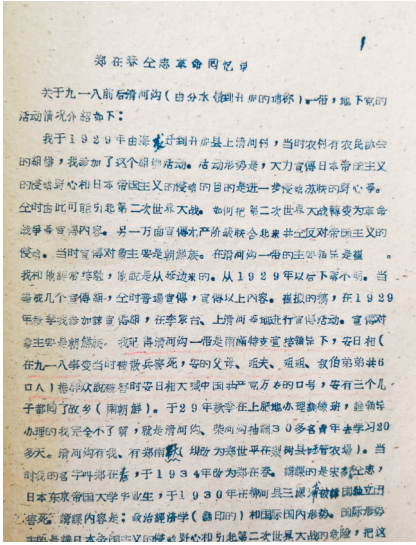 1
郑在春仝志革命回忆录
关于九一八前后清河沟(由分水
到开原的通称)一带,地下党的
活动情况介绍如下:
我于1929年由
到开原县上清河村,当时农村有农民协会
的组织,我参加了这个组织活动。活动形势是,大力宣传日本帝国主义
的侵略野心和日本帝国主义的侵略的目的是进一步侵略苏联的野心等。
仝时由此可能引起第二次世界大战。如何把第二次世界大战转变为革命
战争等宣传内容。另一方面宣传无产阶级联合起来共仝反对帝国主义的
侵略。当时宣传对象主要是朝鲜族。在清河沟一带的主要领导是崔
我和他经常体验,他说是从延边来的。从1929年以后下落不明。当
时宣传以上内容。崔拟的稿,在1929
年
我参加该宣传组,在李家台、上清河等地进行宣传活动。宣传对
象主要是朝鲜族。我记得清河沟一带是南满特支直接领导下,安日相(
在九一八事变当时被散兵害死,安的父母、祖夫、祖祖、叔伯弟弟共6
口人)据群众反映害时安日相大喊中国共产党万岁的口号,安有三个儿
子都回了故乡(南朝鲜)。于29年秋季在上肥地办理训练班,谁领导
办理的我完全不了解,就是清河沟、柴河沟招聘30多名青年去学习20
多天。清河沟有我、有郑南
(现改为郑世平在
县
农场)。当
时我的名字叫郑在
,于1934年改为郑在春。讲课的是宋
仝志,
日本东京帝国大学毕业生,于1930年在柳河县三源浦被韩国独立团
害死。讲课内容是:政治经济学(翻印的)和国际国内形势。国际形势
主要是讲日本帝国主义的侵略野心和引起第二次世界大战的危险,把这